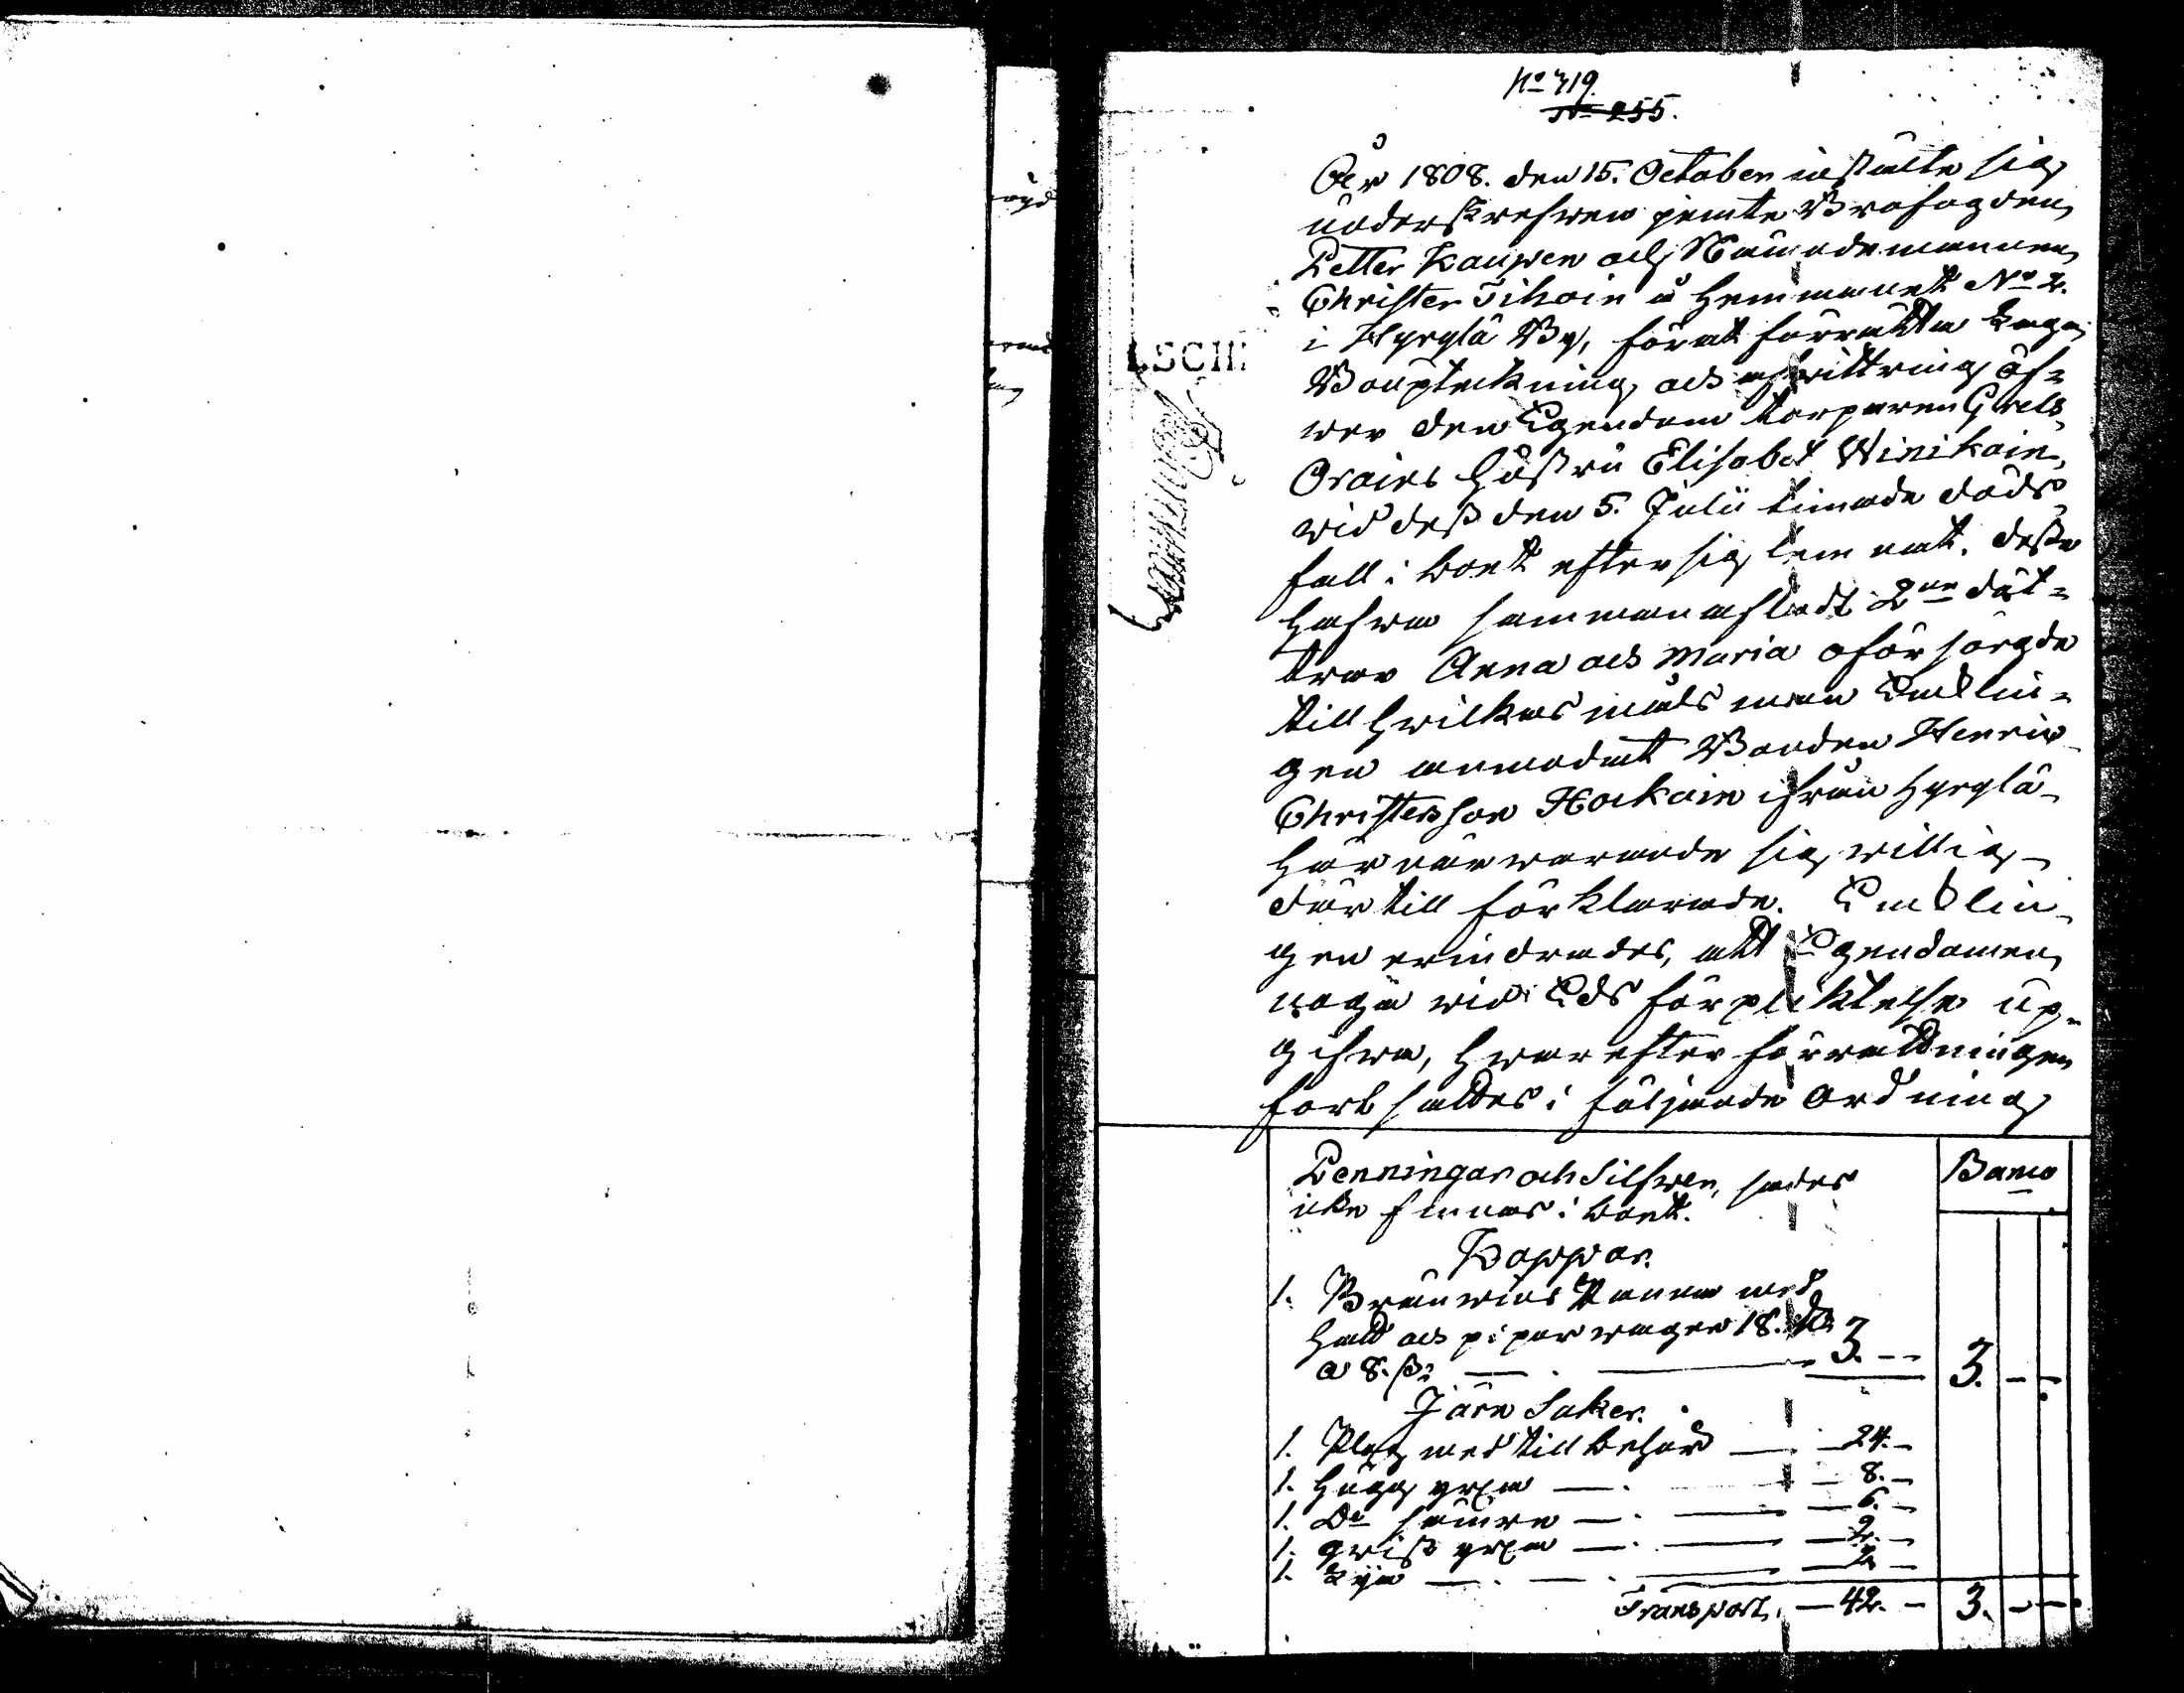 No 419.
No 255.
År 1808. den 15. October instälte sig
underskrefwen jemte Brofogden
Petter Kaupen och Nämndemannen
Christer Tihoin å Hemmanet No 2.
i Hyrylä By, för at förrätta Laga
Bouptekning och afwittring öf-
wer den Egendom torparen Grels
Orains hustru Elisabet Winikain,
wid dess den 5. Julii timade döds-
fall i boet efter sig lemnat. desse
hafwa sammanafladt 2ne döt-
trar Anna och Maria oförsörgde
till hwilkas målsman Enklin-
gen anmodat Bonden Henric
Christersson Hockain ifrån Hyrylä
här närwarande sig willig
där till förklarade. Enklin-
gen erindrades, att Egendomen
noga wid Eds förpliktelse up-
gifwa, hwarefter förrättningen
fortsattes i följande ordning
Penningar och Silfwer, sades
icke finnas i boet.
Banco
Koppar.
1. Bränwins Panna med
hatt och pipor wager 18. ℔
a 8. ß. 3. - - 3. - -
Järn Saker.
1. Plog med tillbehör 24. -
1. Hugg yxa 8. -
1. Do sämre 6. -
1. qwist yxa 2. -
1. Lya 2 -
Transport, 42. - 3. - -